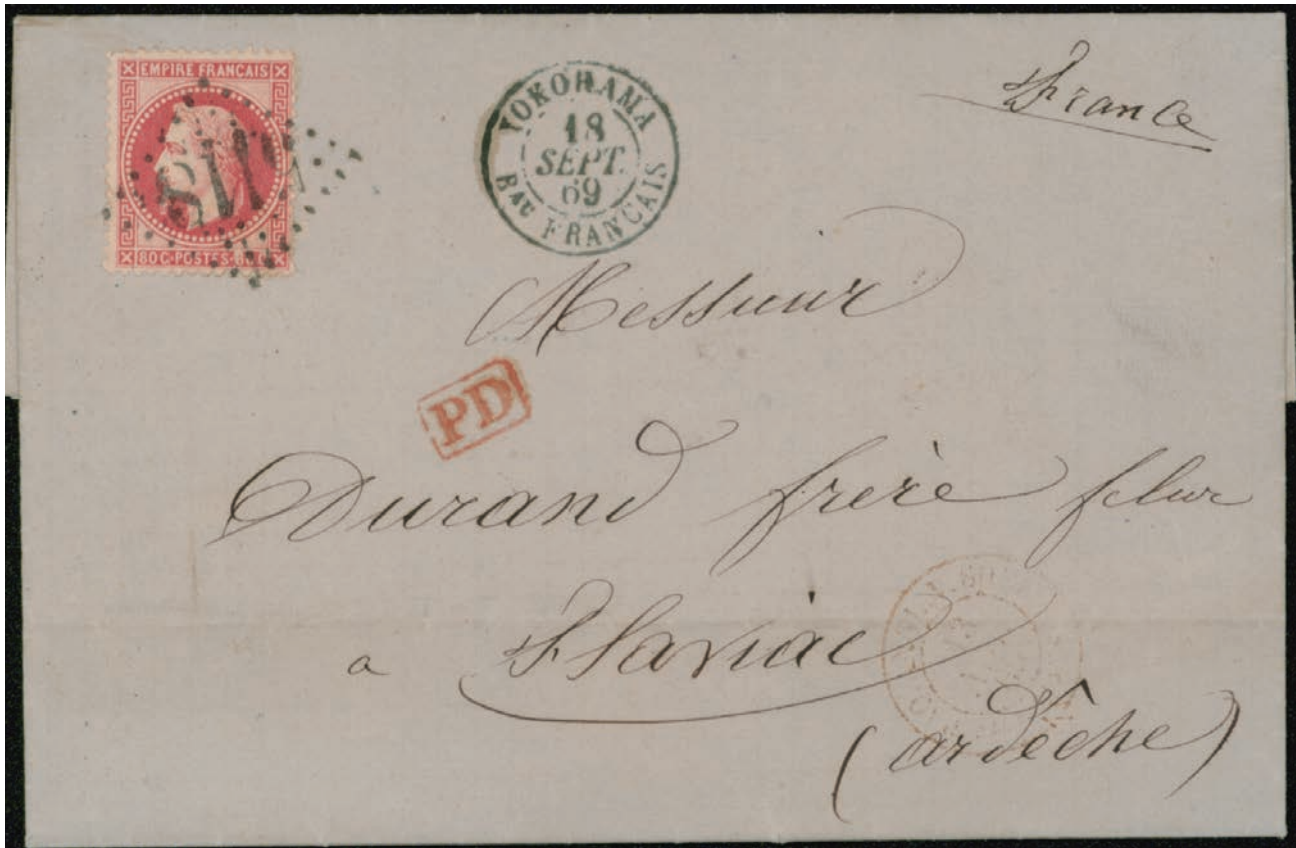 EMPIRE FRANÇAIS
80 C·POSTES·80 C
5118
YOKOHAMA
18
SEPT.
69
Bau FRANCAIS
France
Messieur
PD
Durand frère
a Flaviac
(ardêche)